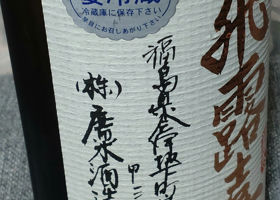 要冷蔵
冷蔵庫に保存下さい
早目にお召しあがり下さい
飛露喜
福島県会津坂下町
甲三
(株)廣木酒造